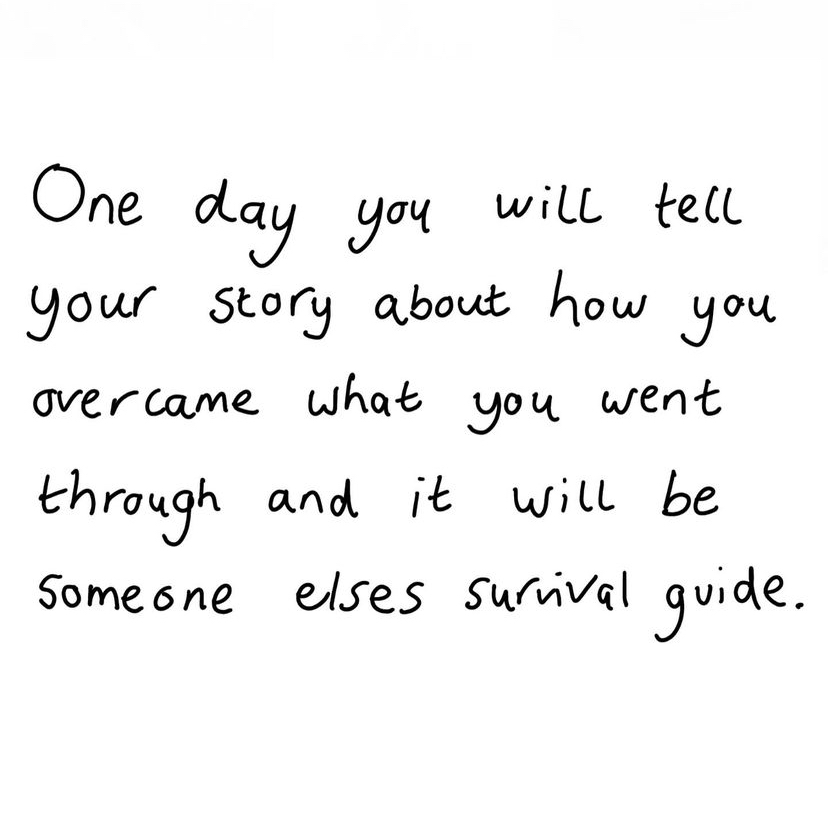 One day you will tell
your story about how you
overcame what you went
through and it will be
someone elses survival guide.